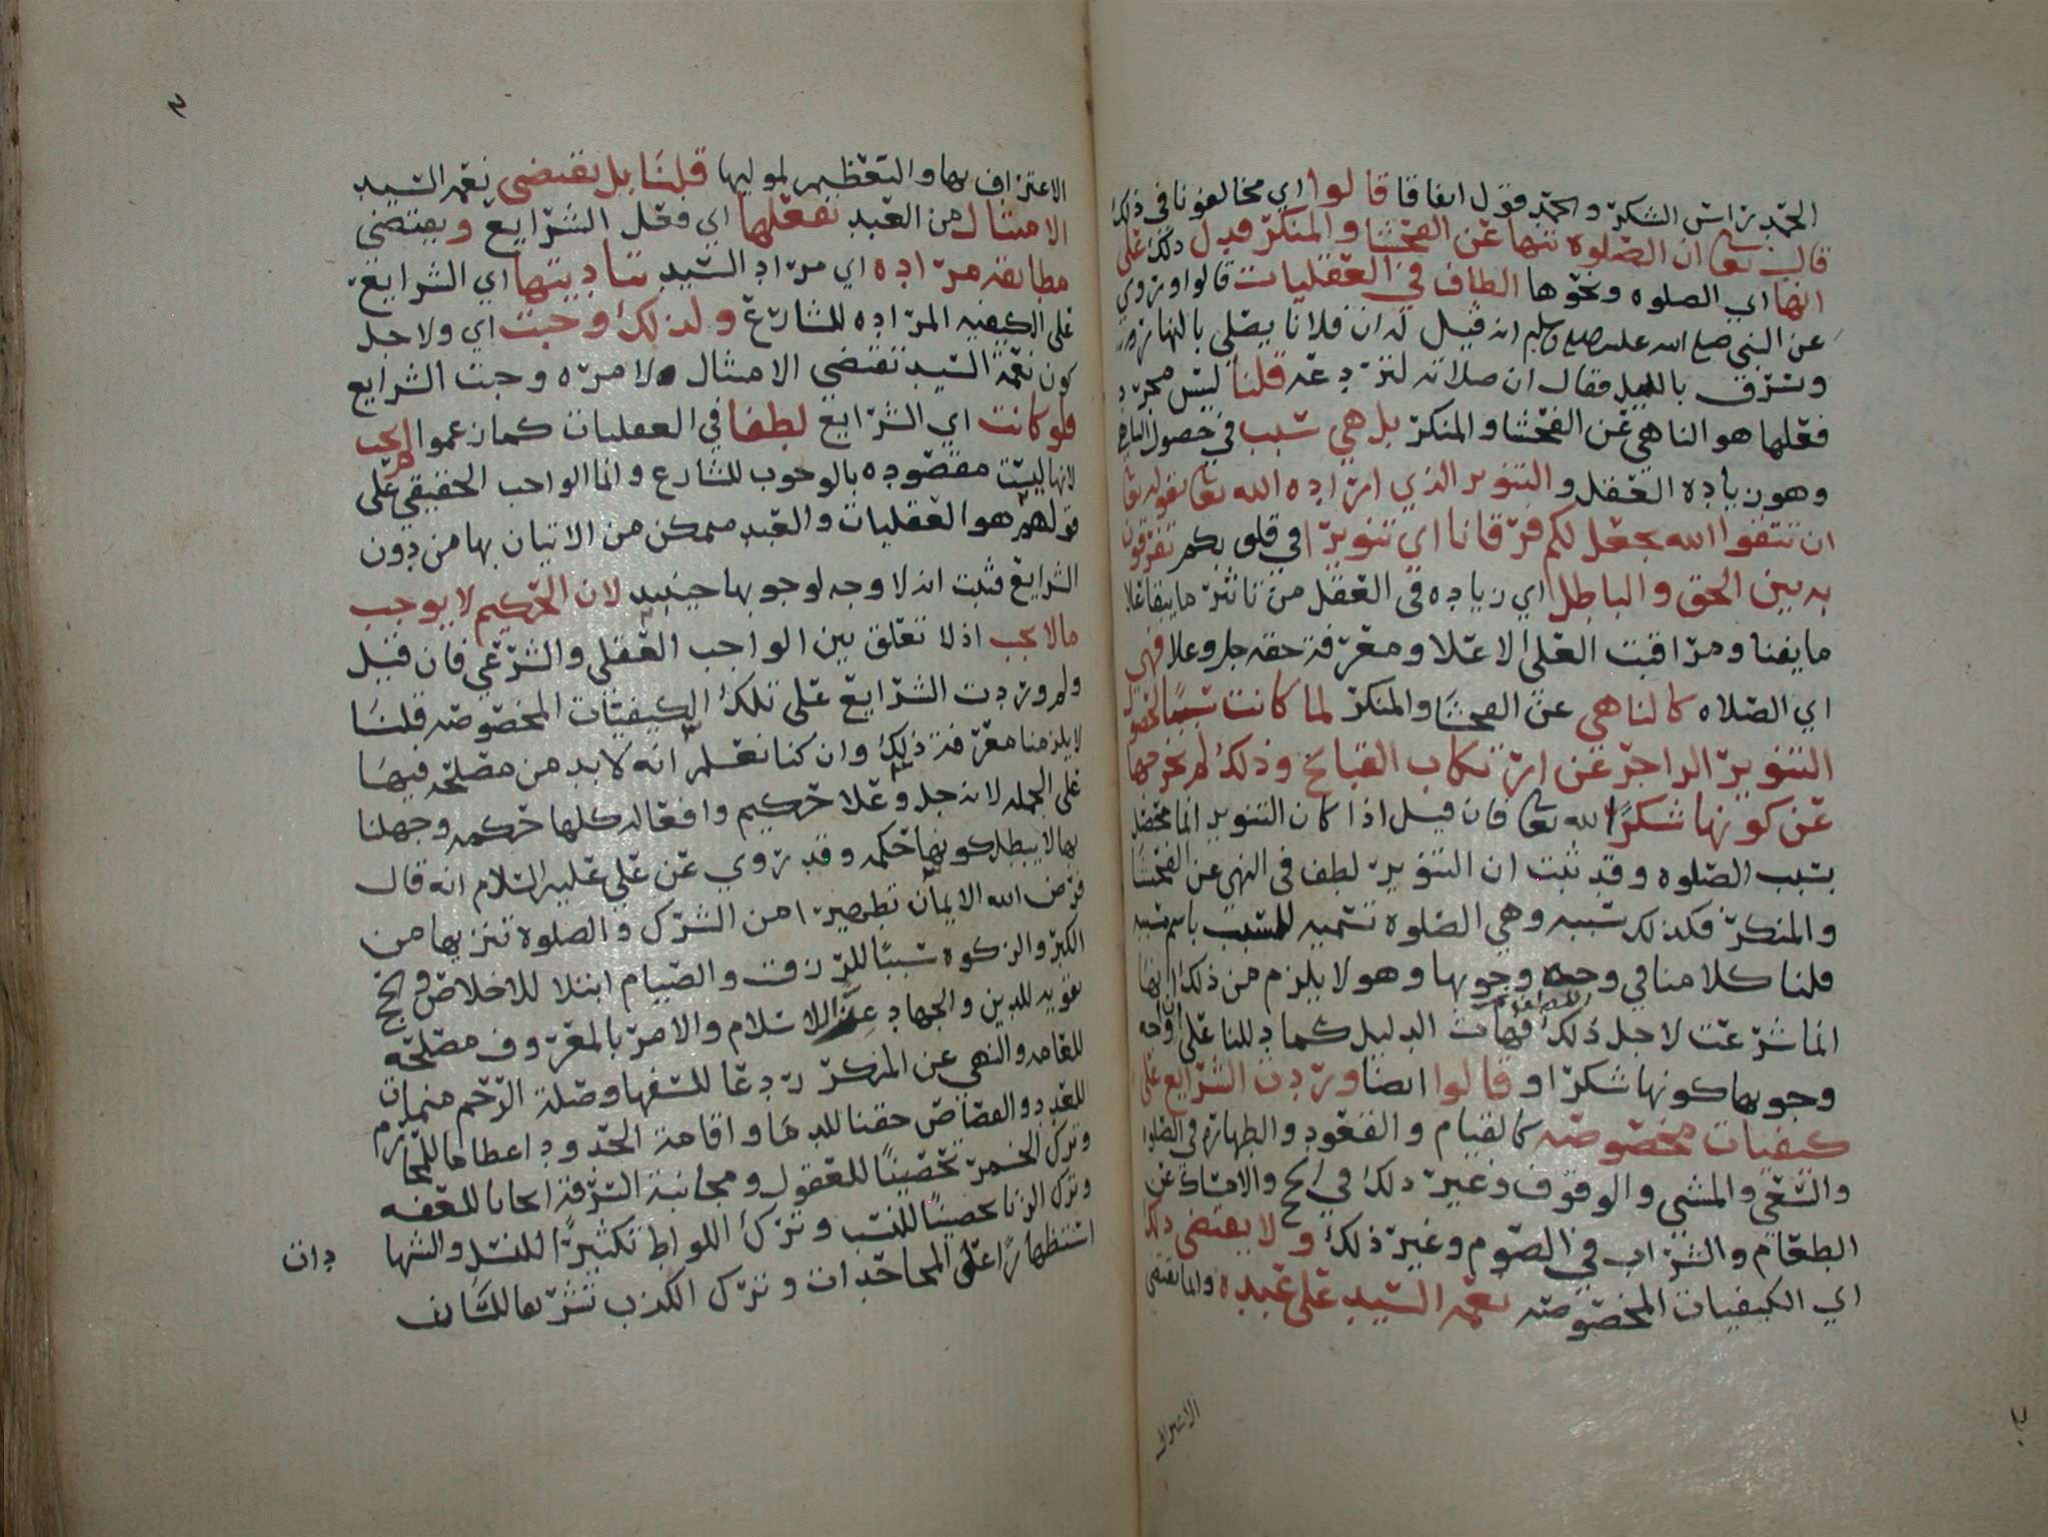 الحمد راس الشكر والحمد قول اتفاقا قالوا اي مخالفونا في ذلك
قال تعا ان الصلوه تنها عن الفحشا والمنكر فدل ذلك على
انها اي الصلوه ونحوها الطاف في العقليات قالوا وروي
عن النبي صلى الله عليه وسلم انه قيل له ان فلانا يصلي بالنهار
وسرق بالليل فقال ان صلاته لتردعه قلنا ليس مجرد
فعلها هو الناهي عن الفحشا والمنكر بل هي سبب في حصول الناهي
وهو زيادة العقل والتنوير الذي اراده الله تعا بقوله تعا
ان تتقوا الله يجعل لكم فرقانا اي تنويرا في قلوبكم تفرقون
به بين الحق والباطل اي زياده في العقل من تاثر ما يبقا على
ما يفنا ومراقبت العلي الاعلا ومعرفة حقه جل وعلا فهي
اي الصلاه كالناهي عن الفحشا والمنكر لما كانت سببا لحصول
التنوير الزاجر عن ارتكاب القبايح وذلك لم يخرجها
عن كونها شكرا لله تعا فان قيل اذا كان التنوير انما يحصل
بسبب الصلوه وقد ثبت ان التنوير لطف في النهي عن الفحشا
والمنكر فكذلك سببه وهي الصلوه تسميه للمسبب باسم سببه
قلنا كلامنا في وجه وجوبها وهو لا يلزم من ذلك انها
انما شرعت لاجل ذلك فهات الدليل كما دللنا على ان وجه
وجوبها كونها شكرا وقالوا ايضا وردت الشرايع على
كيفيات مخصوصه كالقيام والقعود والطهارة في الصلوة
والسعي والمشي والوقوف وغير ذلك في الحج والامساك عن
الطعام والشراب في الصوم وغير ذلك ولا يقتضي ذلك
اي الكيفيات المخصوصه نعمه السيد على عبده وانما يقتضي
الاعتراف
الاعتراف بها والتعظيم لموليها قلنا بل يقتضي نعمه السيد
الامتثال من العبد بفعلها اي فعل الشرايع ويقتضي
مطابقه مراده اي مراد السيد بتاديتها اي الشرايع
على الكيفيه المراده للشارع ولذلك وجبت اي ولاجل
كون نعمة السيد تقتضي الامتثال لامره وجبت الشرايع
فلو كانت اي الشرايع لطفا في العقليات كما زعموا لم يجب
لانها ليست مقصوده بالوجوب للشارع وانما الواجب الحقيقي على
قولهم هو العقليات والعبد متمكن من الاتيان بها من دون
الشرايع فثبت انه لا وجه لوجوبها حينيذ لان الحكيم لا يوجب
مالا يجب اذ لا تعلق بين الواجب العقلي والشرعي فان قيل
ولم وردت الشرايع على تلك الكيفيات المخصوصه قلنا
لا يلزمنا معرفة ذلك وان كنا نعلم انه لا بد من مصلحه فيها
على الجمله لانه جل وعلا حكيم وافعاله كلها حكمه وجهلنا
بها لا يبطل كونها حكمه وقد روي عن علي عليه السلام انه قال
فرض الله الايمان تطهيرا من الشرك والصلوة تنزيها من
الكبر والزكوه سببا للرزق والصيام ابتلا للاخلاص والحج
تقويه للدين والجهاد عزا للاسلام والامر بالمعروف مصلحه
للعامه والنهي عن المنكر ردعا للسفها وصلة الرحم منماة
للعدد والقصاص حقنا للدما واقامة الحدود اعظاما للمحارم
وترك الخمر تحصينا للعقول ومجانبة السرقة ايجابا للعفه
وترك الزنا تحصينا للنسب وترك اللواط تكثيرا للنسل والشها
دات
استظهارا على المجاحدات وترك الكذب تشريفا للسان